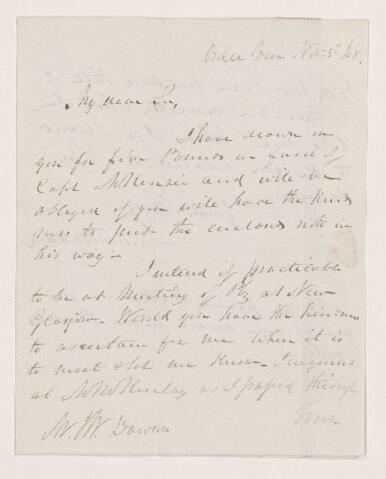 Nov 5th /48.
My dear Sir,
I have drawn on
you for five Pounds in favor of
Capt McKensie and will be
obliged if you will have the kind
ness to put the enclosed note in
his way -
I intend if practicable
to be at Meeting of Pby at New
Glasgow. Would you have the kindness
to ascertain for me when it is
to meet & let me know. I inquired
at Mr McKinlay as I passed through
Mr. J W. Dawson